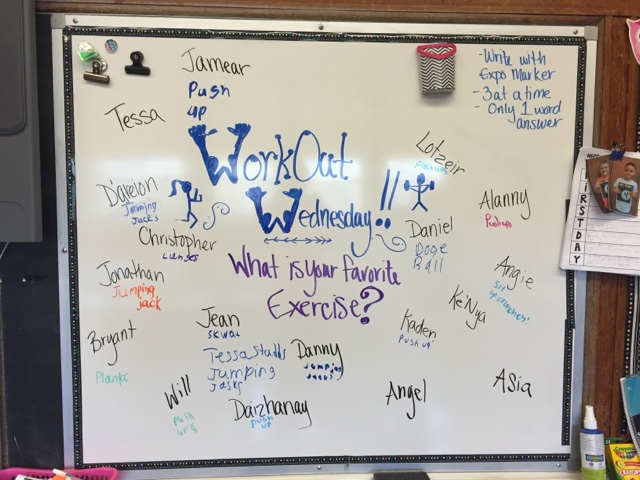 Jamear
Push
up
- Write with
Expo Marker
- 3 at a time
- Only 1 word
answer
Tessa
WorkOut
Wednesday!!
What is your favorite
Exercise?
Lotzeir
pushups
D'areion
Jumping
Jacks
Alanny
Pushups
Christopher
Lunges
Daniel
Doge
Ball
Jonathan
Jumping
jack
Angie
Ke'Nya
Kaden
Push up
Bryant
Planks
Jean
Skwat
Jumping
Danny
Jumping
Jacks
Will
Push
up's
Daizhanay
Push
up
Angel
Asia
FIRST DAY